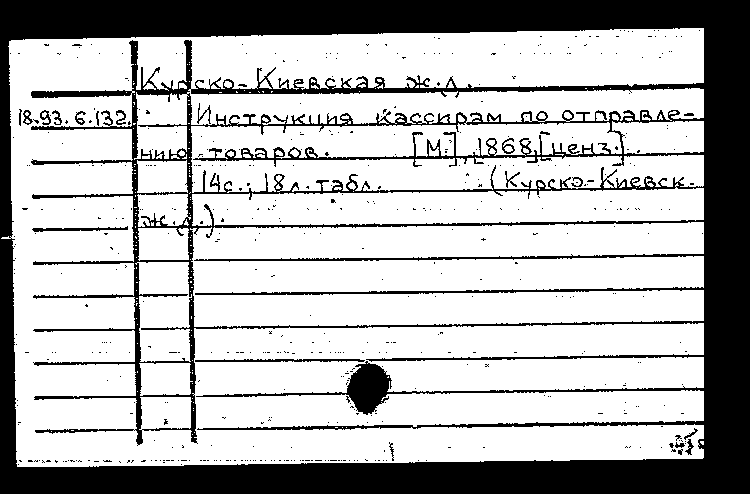 Курско-Киевская ж.д.
18.93.6.132. Инструкция кассирам по отправле-
нию товаров. [М.], 1868, [ценз.].
14с.; 18л. табл. (Курско-Киевск.
ж.д.).